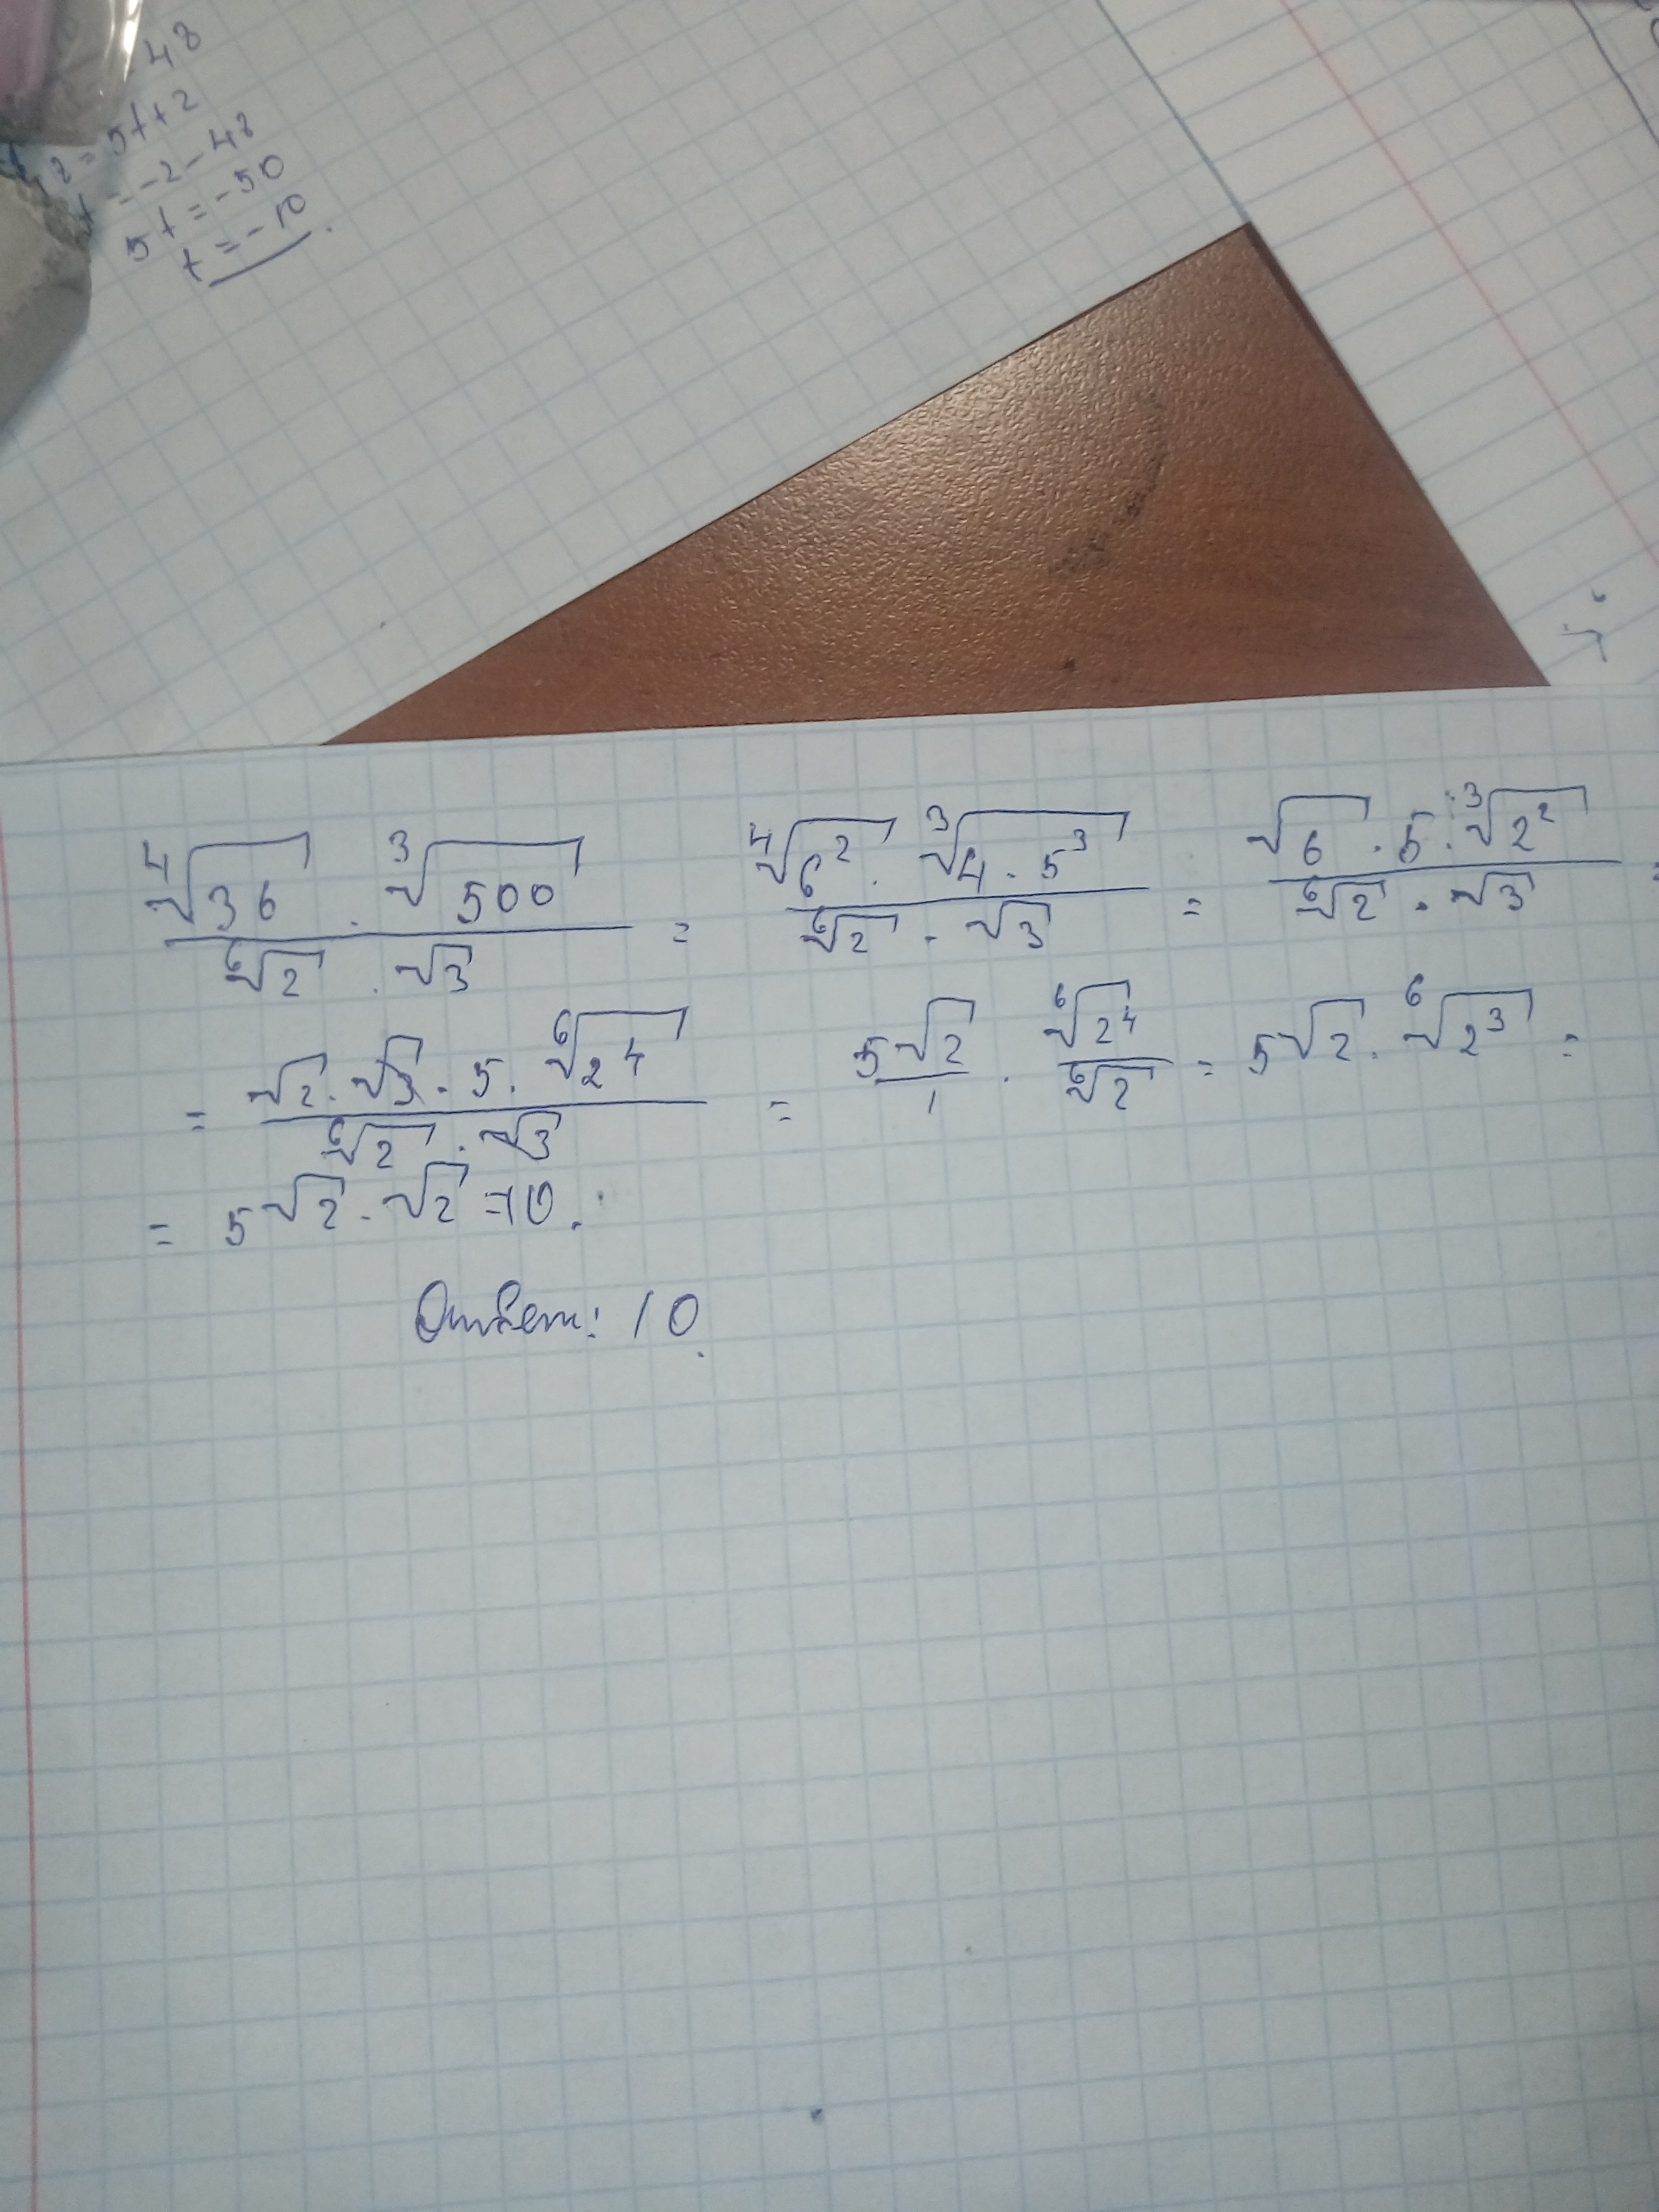 48
2 = 5t + 2
t = -2 - 48
5t = -50
t = -10.
⁴√36 · ³√500 / ⁶√2 · √3 = ⁴√6² · ³√4 · 5³ / ⁶√2 · √3 = √6 · 5 · ³√2² / ⁶√2 · √3 =
= √2 · √3 · 5 · ⁶√2⁴ / ⁶√2 · √3 = 5√2 / 1 · ⁶√2⁴ / ⁶√2 = 5√2 · ⁶√2³ =
= 5√2 · √2 = 10.
Ответ: 10.